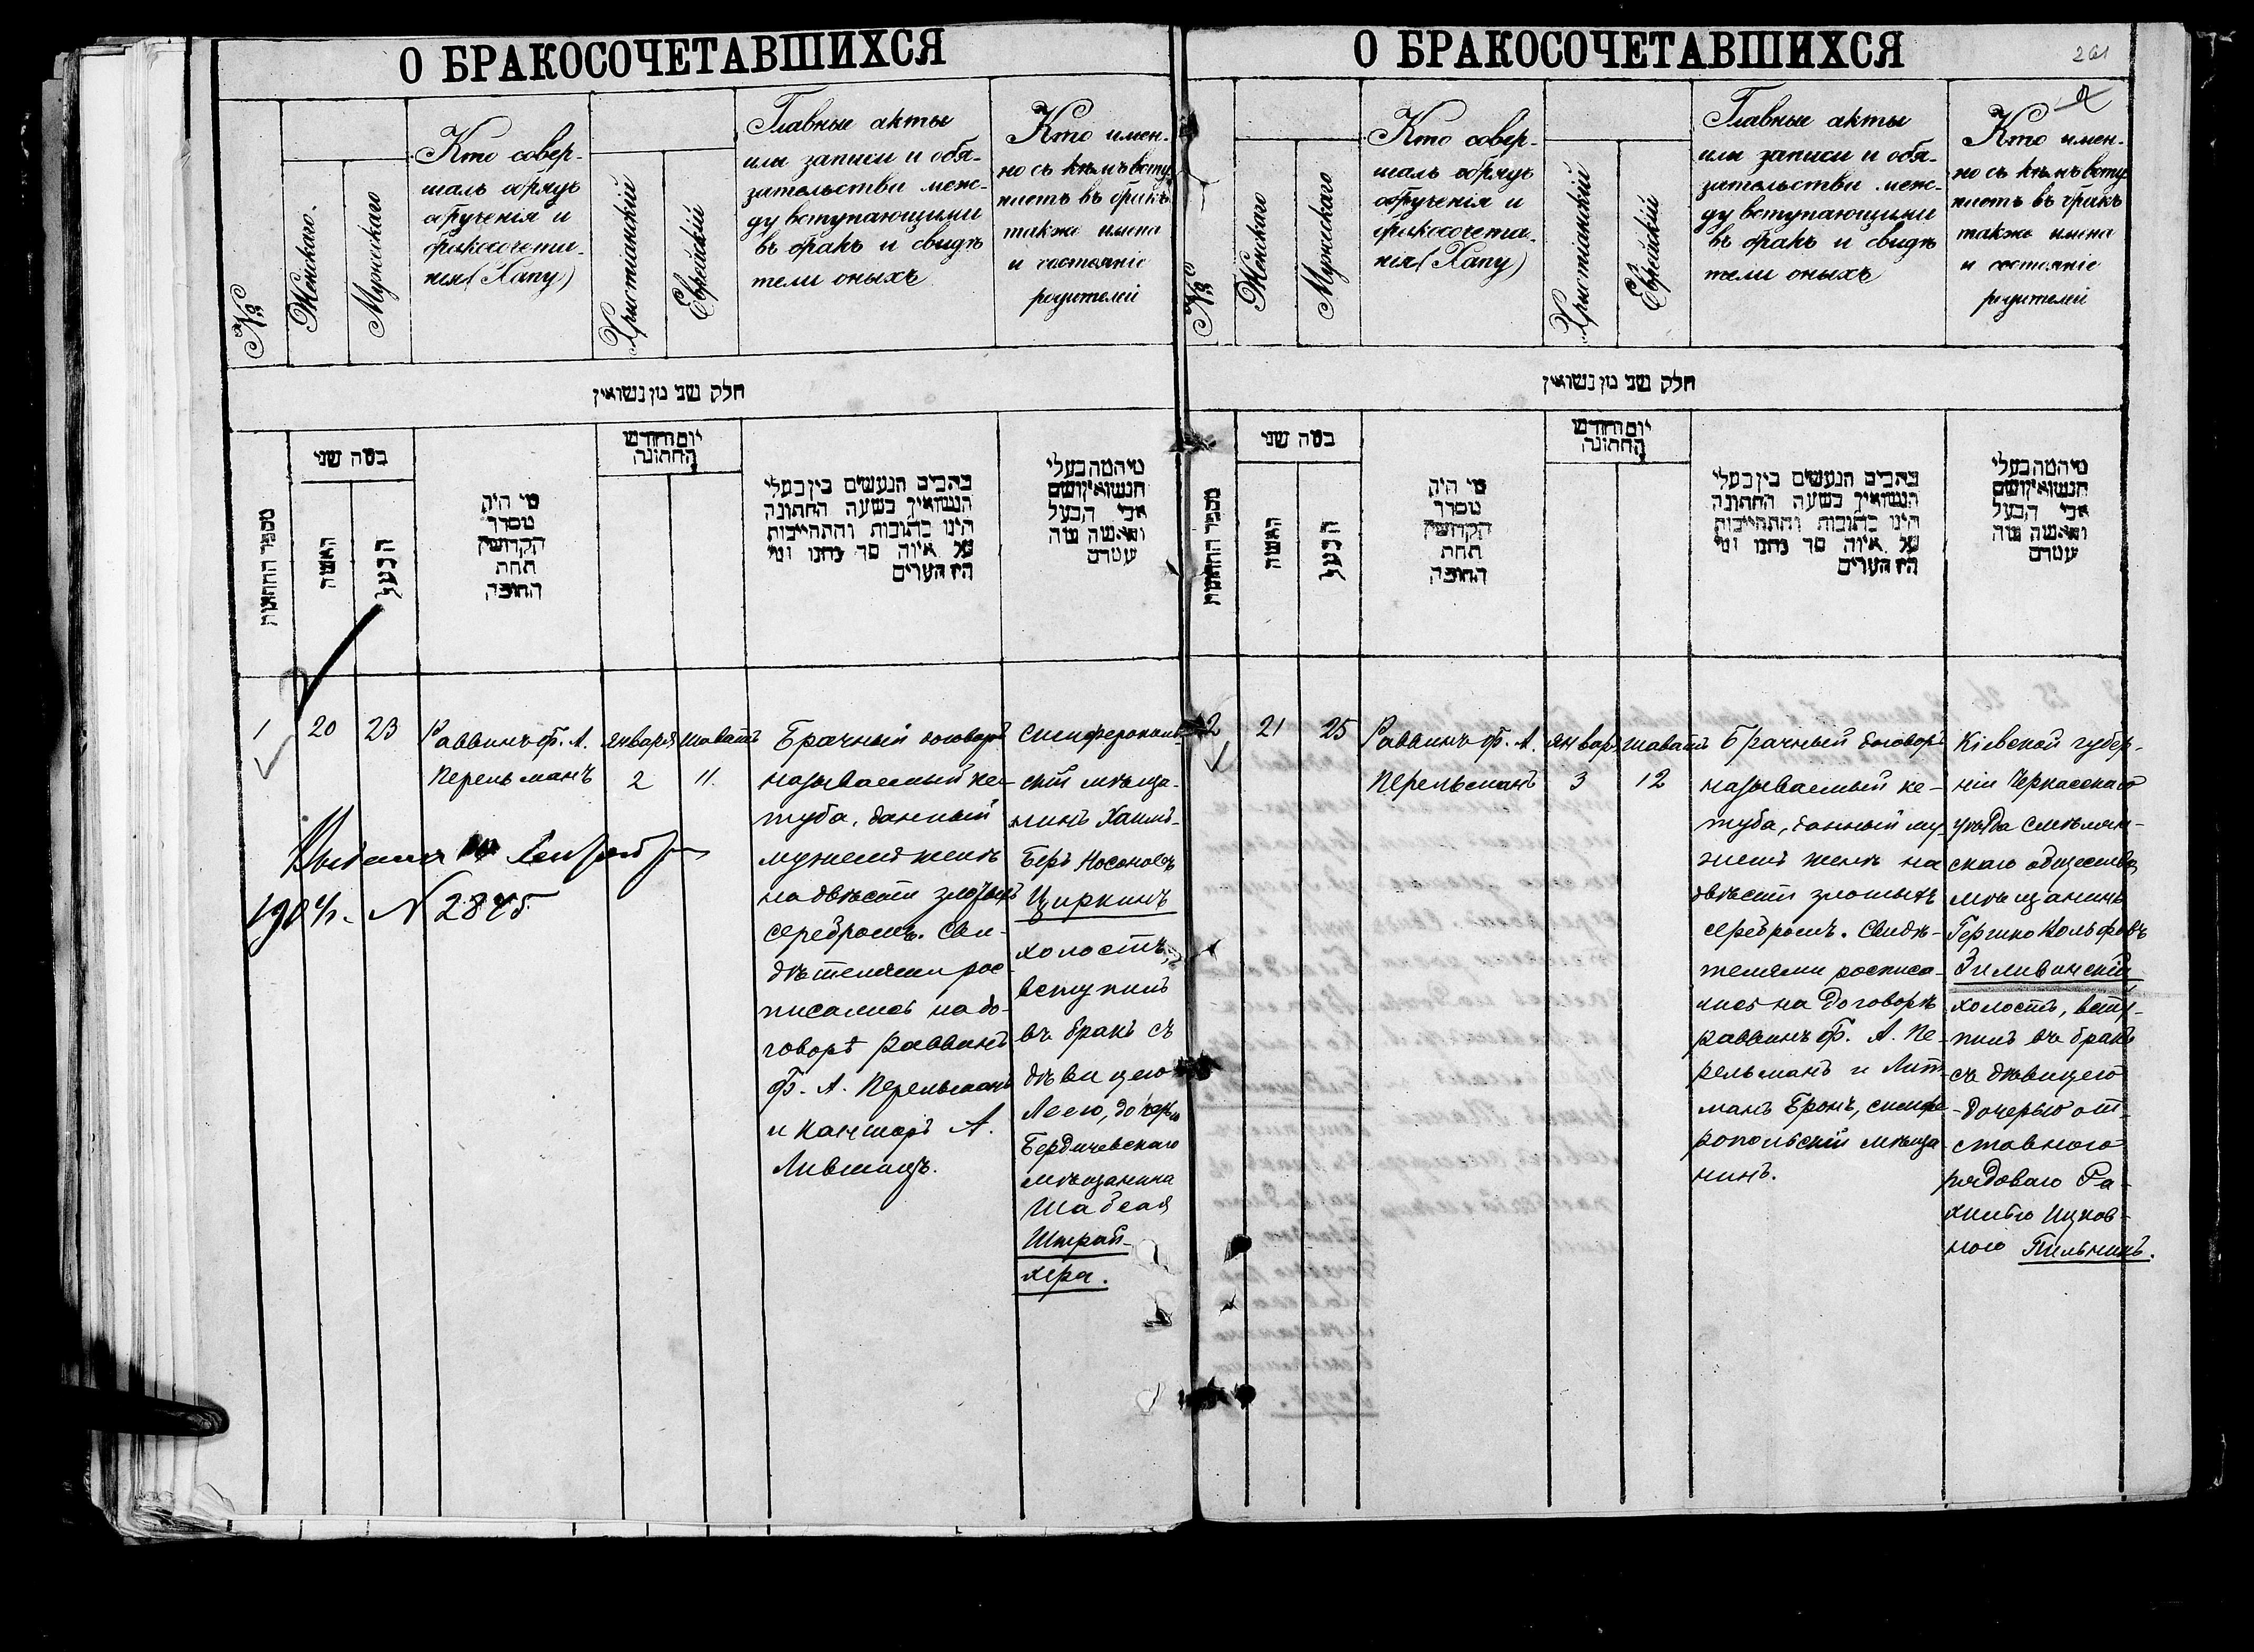 О БРАКОСОЧЕТАВШИХСЯ
№
Женскаго.
Мужескаго
Кто совер-
шалъ обрядъ
обрученія и
бракосочета-
нія (Хапу)
Христіанскій
Еврейскій
Главные акты
или записи и обя-
зательства меж-
ду вступающими
въ бракъ и свидѣ
тели оныхъ
Кто имен-
но съ кѣмъ всту
паетъ въ бракъ
также имена
и состояніе
родителей
חלק שני מן נשואין
מספר החתונות
כמה שני
האשה
הבעל
מי היה
מסדר
הקדושין
תחת
החופה
יום וחודש
החתונה
כתבים הנעשים בין בעלי
הנשואין בשעה החתונה
הינו כתובות והתחייבות
על איזה סך נתנו ומי
היו העדים
מיהמה בעלי
הנשואין ושם
אבי הבעל
והאשה ומה
עמדם
1
20
23
Раввинъ Ф. А.
Перельманъ
Января
2
Шавата
11.
Брачный договоръ
называемый ке-
туба, данный
мужемъ женѣ
на двѣсти злотыхъ
серебромъ. Сви-
дѣтелями рос-
писались на до-
говорѣ раввинъ
Ф. А. Перельманъ
и канторъ А.
Лившицъ.
Симферополь-
скій мѣща-
нинъ Хаимъ-
Беръ Носоновъ
Циркинъ
холостъ,
вступилъ
въ бракъ съ
дѣвицею
Леею, дочерью
Бердичевскаго
мѣщанина
Шабсая
Штрай-
хера.
1904 г. N 2845
О БРАКОСОЧЕТАВШИХСЯ
261
2
№
Женскаго
Мужескаго
Кто совер-
шалъ обрядъ
обрученія и
бракосочета-
нія (Хапу)
Христіанскій
Еврейскій
Главные акты
или записи и обя-
зательства меж-
ду вступающими
въ бракъ и свидѣ
тели оныхъ
Кто имен-
но съ кѣмъ всту
паетъ въ бракъ
также имена
и состояніе
родителей
חלק שני מן נשואין
מספר החתונות
כמה שני
האשה
הבעל
מי היה
מסדר
הקדושין
תחת
החופה
יום וחודש
החתונה
כתבים הנעשים בין בעלי
הנשואין בשעה החתונה
הינו כתובות והתחייבות
על איזה סך נתנו ומי
היו העדים
מיהמה בעלי
הנשואין ושם
אבי הבעל
והאשה ומה
עמדם
2
21
25
Раввинъ Ф. А.
Перельманъ
Январ
3
Шавата
12
Брачный договоръ
называемый ке-
туба, данный му-
жемъ женѣ на
двѣсти злотыхъ
серебромъ. Свидѣ-
телями росписа-
лись на договорѣ
раввинъ Ф. А. Пе-
рельманъ и Лит-
манъ Бронъ, симфе
ропольскій мѣща
нинъ.
Кіевской губер-
ніи Черкасскаго
уѣзда Смѣлян-
скаго общества
мѣщанинъ
Гершко Вольфовъ
Зиливинскій
холостъ, всту-
пилъ въ бракъ
съ дѣвицею
-дочерью от-
ставного
рядоваго Ра-
хилью Ицков-
ною Пильникъ.